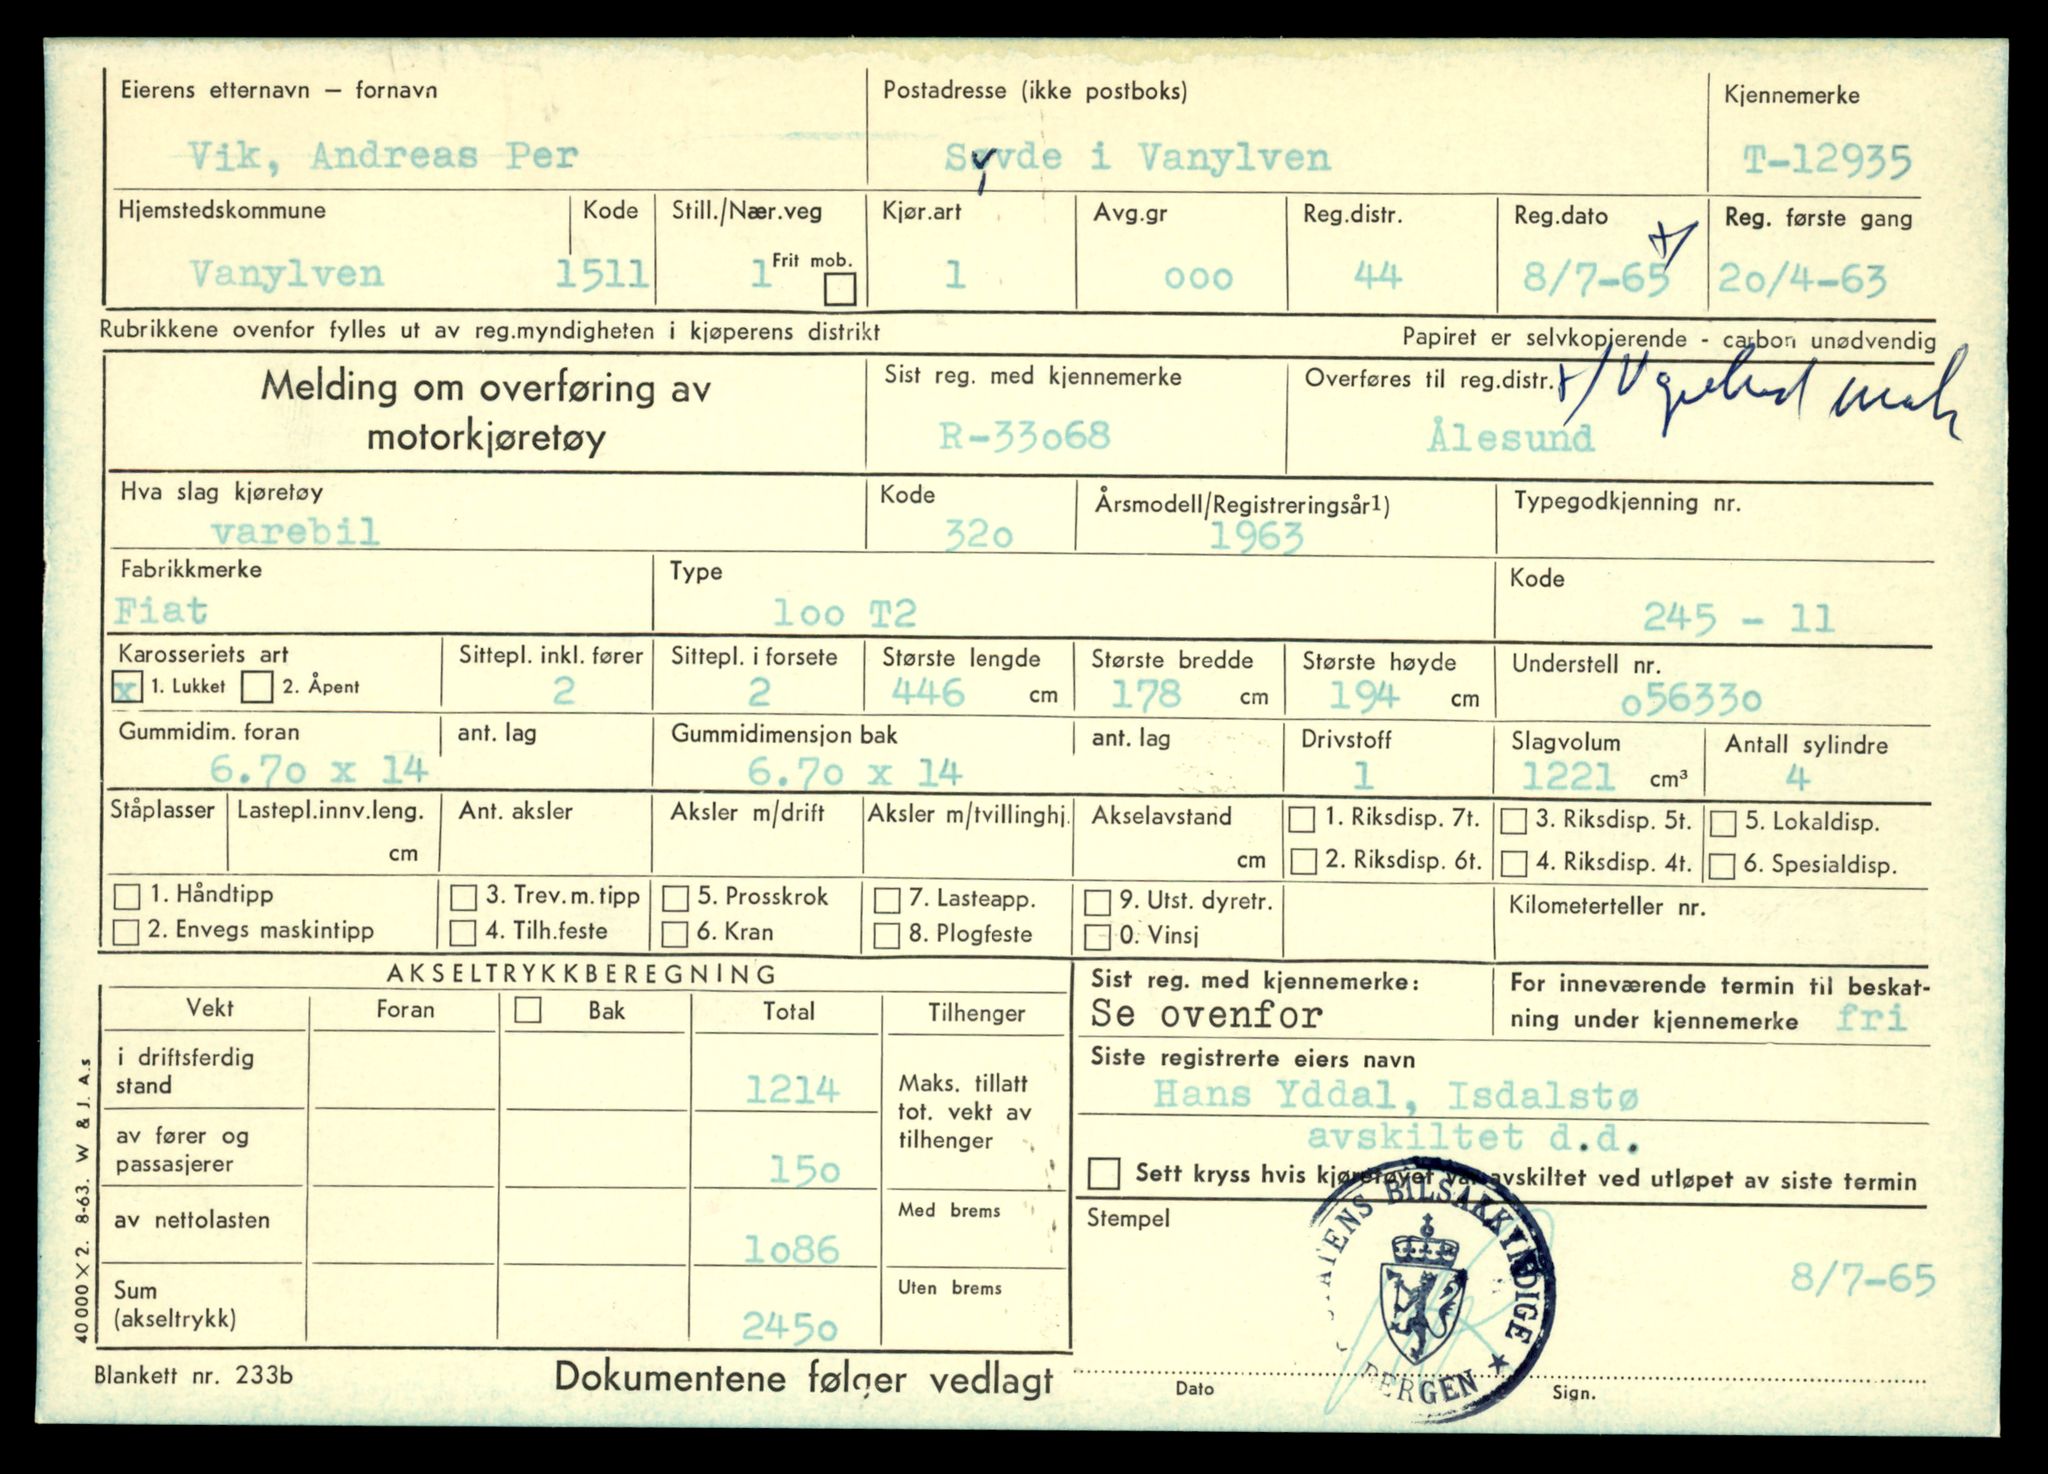 Eierens etternavn – fornavn
Vik, Andreas Per
Postadresse (ikke postboks)
Syvde i Vanylven
Kjennemerke
T-12935
Hjemstedskommune
Vanylven
Kode
1511
Still./Nær.veg
1 Frit mob.
Kjør.art
1
Avg.gr
ooo
Reg.distr.
44
Reg.dato
8/7-65
Reg. første gang
2o/4-63
Rubrikkene ovenfor fylles ut av reg.myndigheten i kjøperens distrikt
Papiret er selvkopierende - carbon unødvendig
Melding om overføring av
motorkjøretøy
Sist reg. med kjennemerke
R-33o68
Overføres til reg.distr.
Ålesund
Hva slag kjøretøy
varebil
Kode
32o
Årsmodell/Registreringsår1)
1963
Typegodkjenning nr.
Fabrikkmerke
Fiat
Type
loo T2
Kode
245 - 11
Karosseriets art
x 1. Lukket 2. Åpent
Sittepl. inkl. fører
2
Sittepl. i forsete
2
Største lengde
446 cm
Største bredde
178 cm
Største høyde
194 cm
Understell nr.
o5633o
Gummidim. foran
6.7o x 14
ant. lag
Gummidimensjon bak
6.7o x 14
ant. lag
Drivstoff
1
Slagvolum
1221 cm³
Antall sylindre
4
Ståplasser
Lastepl.innv.leng.
cm
Ant. aksler
Aksler m/drift
Aksler m/tvillinghj.
Akselavstand
cm
1. Riksdisp. 7t.
2. Riksdisp. 6t.
3. Riksdisp. 5t.
4. Riksdisp. 4t.
5. Lokaldisp.
6. Spesialdisp.
1. Håndtipp
2. Envegs maskintipp
3. Trev.m.tipp
4. Tilh.feste
5. Prosskrok
6. Kran
7. Lasteapp.
8. Plogfeste
9. Utst. dyretr.
0. Vinsj
Kilometerteller nr.
AKSELTRYKKBEREGNING
Vekt Foran Bak Total Tilhenger
i driftsferdig
stand
1214
Maks. tillatt
tot. vekt av
tilhenger
av fører og
passasjerer
15o
av nettolasten
1o86
Med brems
Sum
(akseltrykk)
245o
Uten brems
Sist reg. med kjennemerke:
Se ovenfor
For inneværende termin til beskat-
ning under kjennemerke fri
Siste registrerte eiers navn
Hans Yddal, Isdalstø
avskiltet d.d.
Sett kryss hvis kjøretøyet var avskiltet ved utløpet av siste termin
Stempel
STATENS BILSAKKYNDIGE
BERGEN
8/7-65
Dato
Sign.
40000 × 2. 8-63. W & J. A.s
Blankett nr. 233b
Dokumentene følger vedlagt